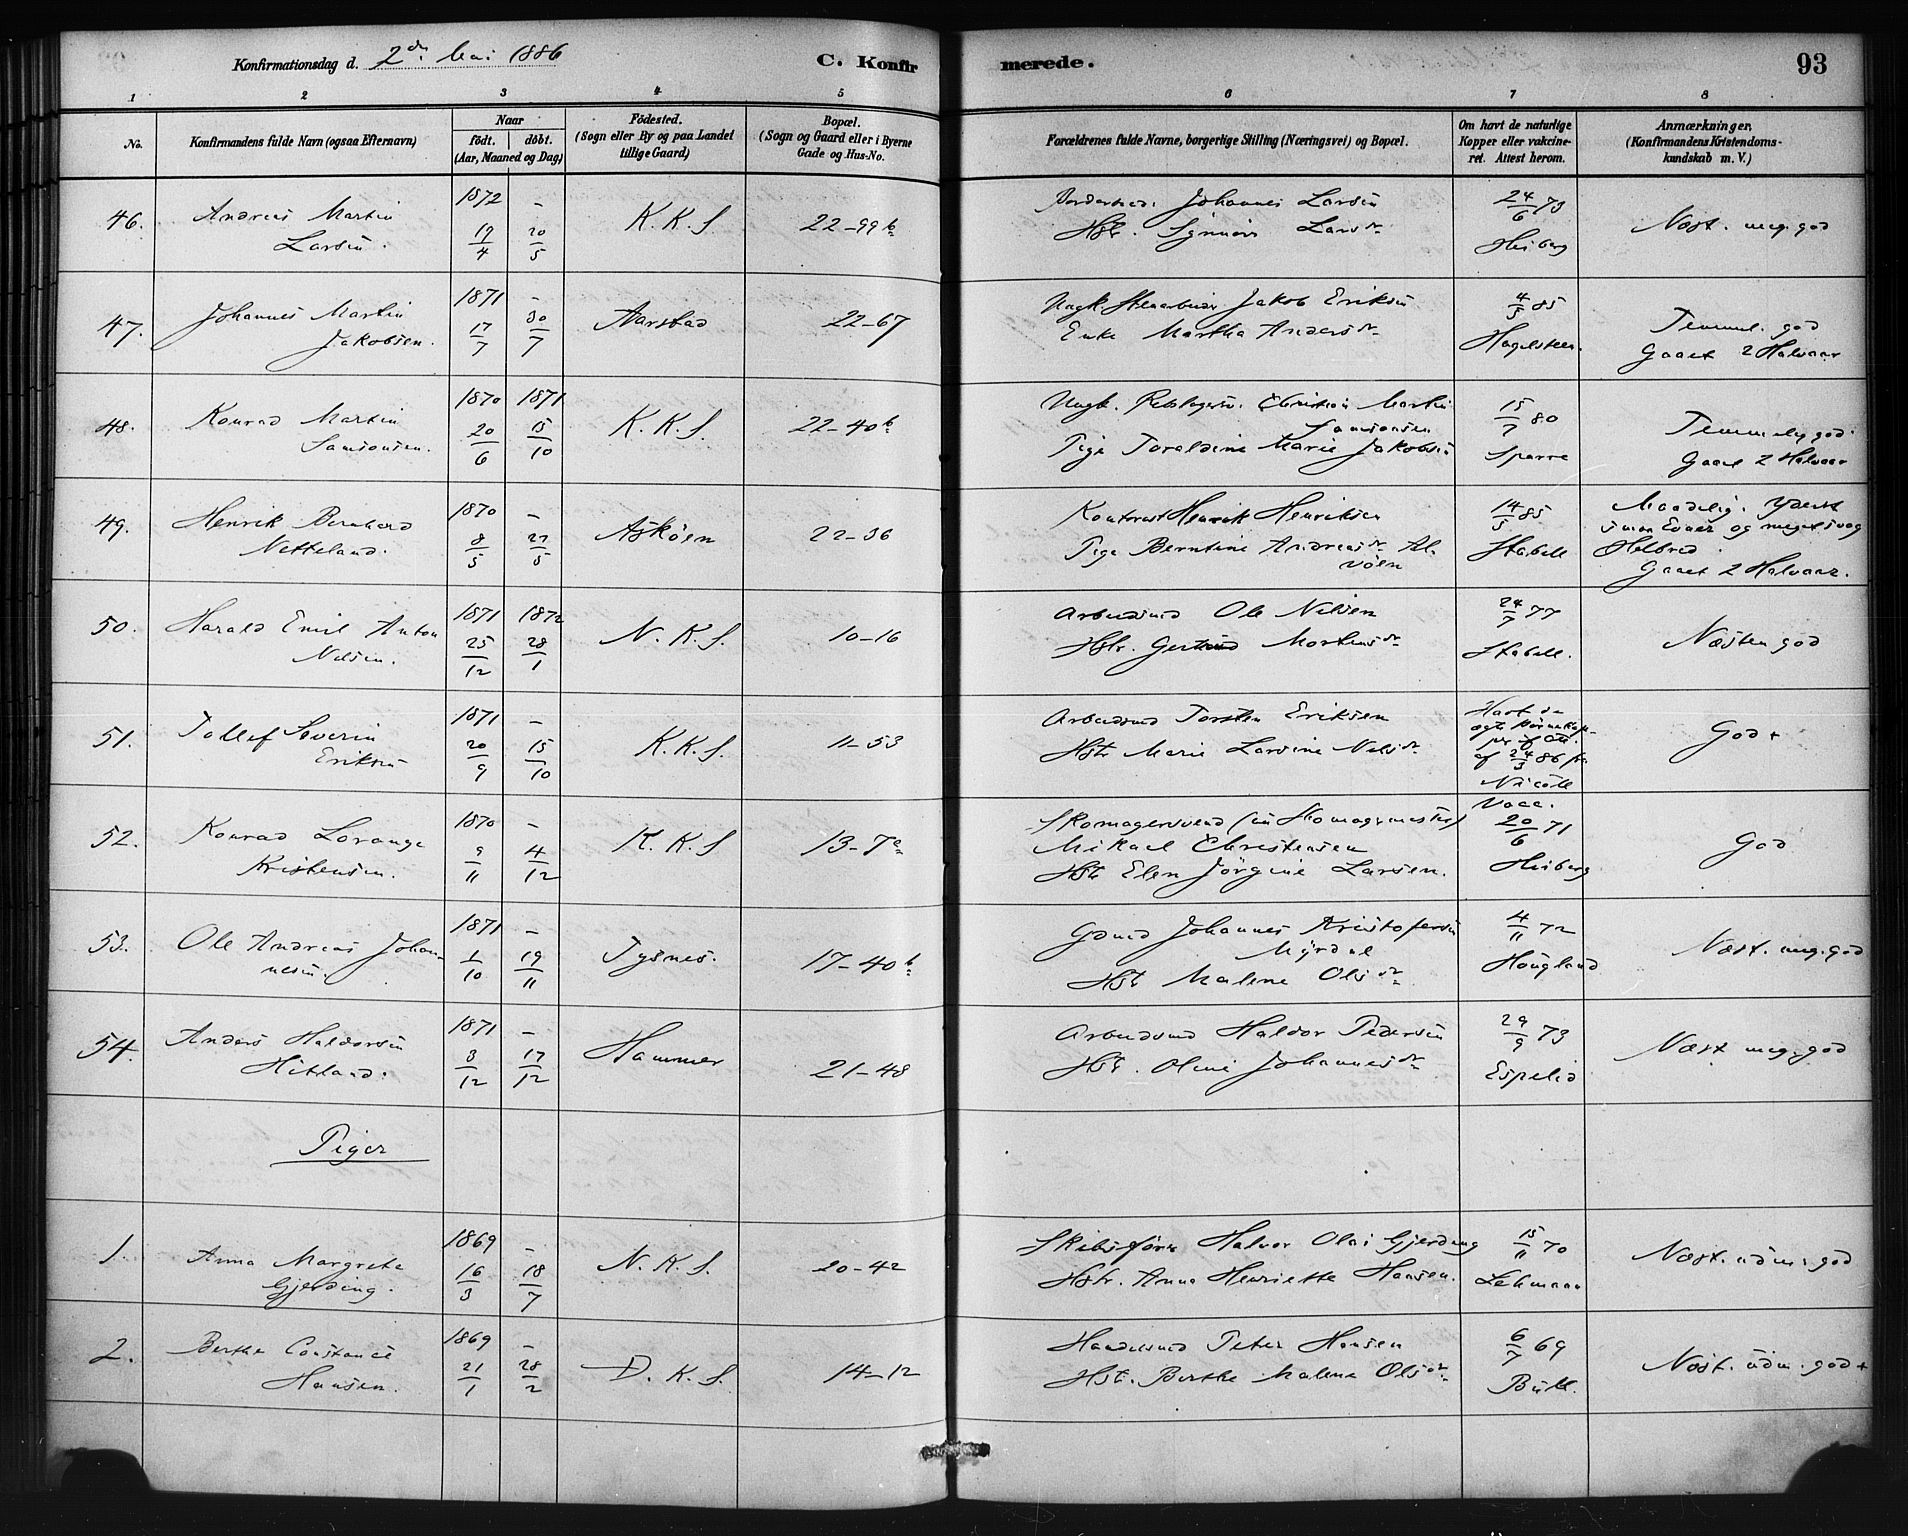 Konfirmationsdag d. 2den Mai 1886 C. Konfirmerede. 93
1 2 3 4 5 6 7 8
No.
Konfirmandens fulde Navn (ogsaa Efternavn)
Naar
født. døbt.
(Aar, Maaned og Dag)
Födested.
(Sogn eller By og paa Landet
tillige Gaard)
Bopæl.
(Sogn og Gaard eller i Byerne
Gade og Hus-No.
Forældrenes fulde Navne, borgerlige Stilling (Næringsvei) og Bopæl.
Om havt de naturlige
Kopper eller vakcine-
ret. Attest herom.
Anmærkninger.
(Konfirmandens Kristendoms-
kundskab m. V.)
46. Andreas Martin Larsen. 1872 19/4 – 20/5 K. K. S 22–99b Johannes Larsen Hstr. Larsdr 24/6 73 Heiberg Næst. meg. god
47. Johannes Martin Jakobsen. 1871 17/7 – 30/7 Aarstad 22–67 Ungk. Jakob Eriksen Enke Martha Andersdr 4/5 85 Hagelsteen. Temmel. god Gaaet 2 Halvaar
48. Konrad Martin Samsonsen. 1870 20/6 1871 15/10 K. K. S. 22–40b Ungk. Christian Martin Samsonsen Pige Toraldine Marie Jakobsen 15/7 80 Sparre Temmelig god. Gaaet 2 Halvaar
49. Henrik Bernhard Netteland. 1870 8/5 – 27/5 Askøen 22–36 Henrik Henriksen Pige Berntine Andreasdr Alvøen 14/5 85 Stabell Maadelig. Yderst smaa Evner og meget svag Helbred. Gaaet 2 Halvaar.
50. Harald Emil Anton Nilsen. 1871 25/12 1872 28/1 N. K. S. 10–16 Arbeidsmd Ole Nilsen Hstr. Gertrud Mortensdr 24/7 77 Stabell. Næsten god
51. Tollef Severin Eriksen 1871 20/9 – 15/10 K. K. S. 11–53 Arbeidsmd Torsten Eriksen Hstr Marie Larsine Nilsdr Havt de ægte af 24/3 86 fra Nicoll God +
52. Konrad Lorange Kristensen. 1870 9/11 – 4/12 K. K. S 13–7a Skomagersvend (nu Skomagermester) Mikael Christensen Hstr Elen Jørgine Larsen. Vacc. 20/6 71 Heiberg God
53. Ole Andreas Johannesen. 1871 1/10 – 19/11 Tysnes. 17–40b Gdmd Johannes Kristofersen Myrdal Hstr Malene Olsdr 4/11 72 Hougland Næst. meg. god
54. Anders Haldorsen Hitland. 1871 3/12 – 17/12 Hammer 21–48 Arbeidsmd Haldor Pedersen Hstr. Oline Johannesdr 29/9 73 Espelid Næst meg. god
Piger
1. Anna Margrete Gjerding. 1869 16/3 – 18/7 N. K. S. 20–42 Skibsfører Halvor Olai Gjerding Hstr. Anna Henriette Hansen. 15/11 70 Lehmann Næst. udm. god
2. Berthe Constance Hansen. 1869 21/1 – 28/2 D. K. S. 14–12 Handelsmd Peter Hansen Hstr. Berthe Malene Olsdr 6/7 69 Bull. Næst. udm. god +